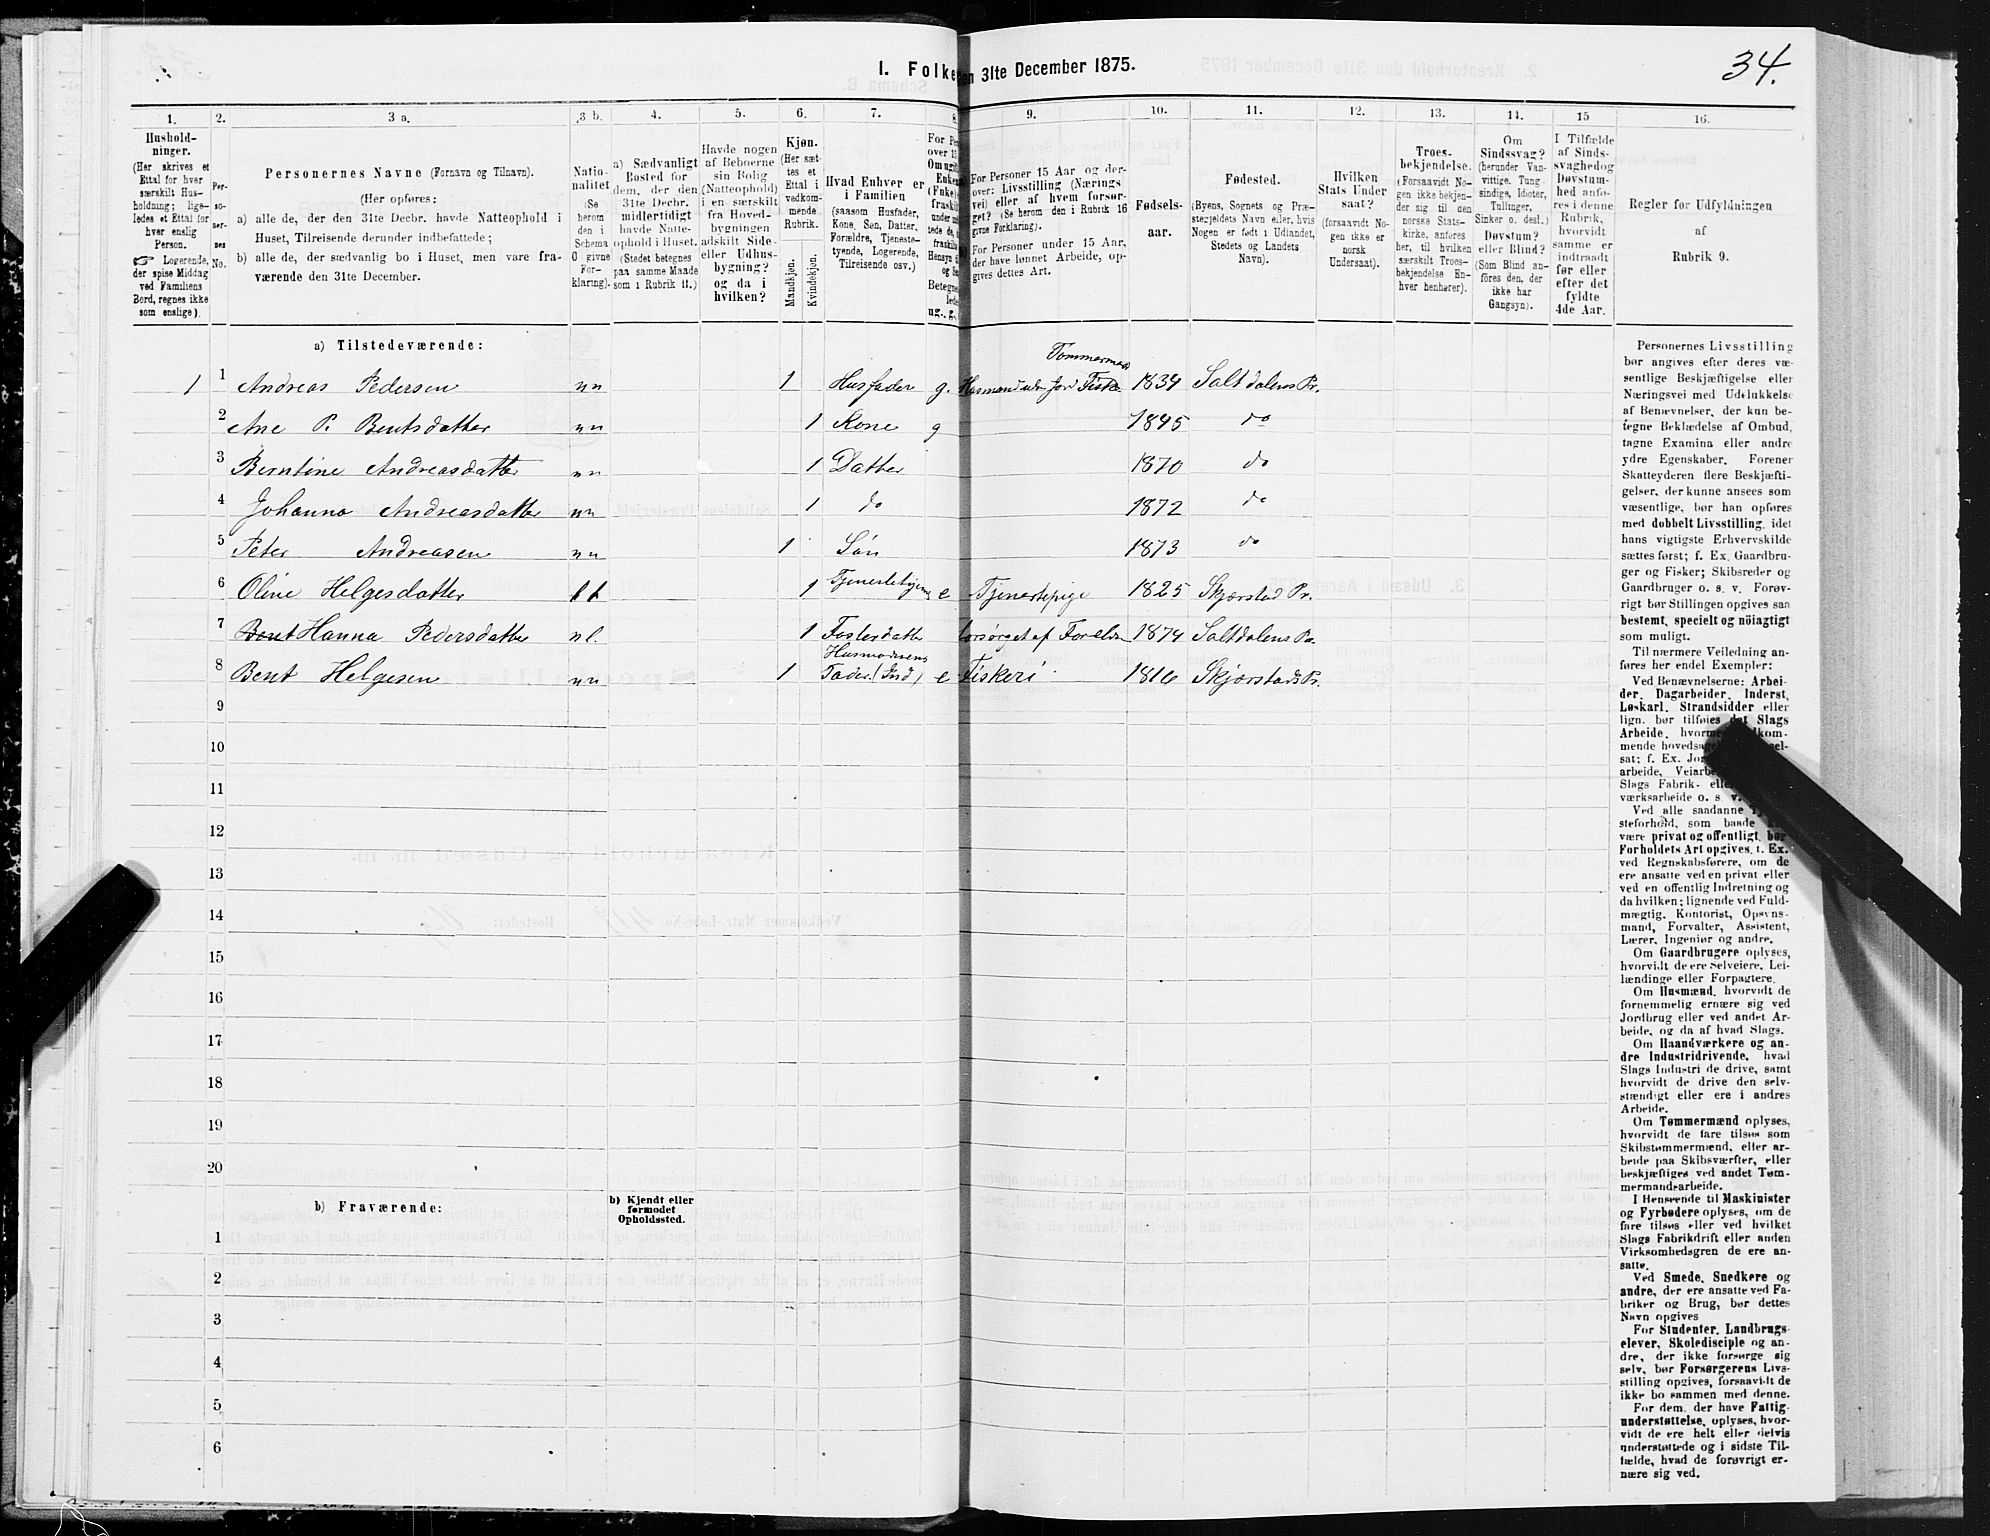 34.
I. Folke
en 31te December 1875.
1. 2. 3 a. 3 b. 4. 5. 6. 7. 8. 9. 10. 11. 12. 13. 14. 15 16.
Hushold-
ninger.
(Her skrives et
Ettal for hver
særskilt Hus-
holdning; lige-
ledes et Ettal for
hver enslig
Person.
☞ Logerende,
der spise Middag
ved Familiens
Bord, regnes ikke
som enslige).
Per-
so-
ner-
nes
No.
Personernes Navne (Fornavn og Tilnavn).
(Her opføres:
a) alle de, der den 31te Decbr. havde Natteophold i
Huset, Tilreisende derunder indbefattede;
b) alle de, der sædvanlig bo i Huset, men vare fra-
værende den 31te December.
Natio-
nalitet
(Se
herom
den i
Schema
O givne
For-
klaring).
a) Sædvanligt
Bosted for
dem, der den
31te Decbr.
midlertidigt
havde Natte-
ophold i Huset.
(Stedet betegnes
paa samme Maade
som i Rubrik 11.)
Havde nogen
af Beboerne
sin Bolig
(Natteophold)
i en særskilt
fra Hoved-
bygningen
adskilt Side-
eller Udhus-
bygning?
og da i
hvilken?
Kjøn.
(Her sæt-
tes et
Ettal i
vedkom-
mende
Rubrik.
Mandkjøn.
Kvindekjøn.
Hvad Enhver er
i Familien
(saasom Husfader,
Kone, Søn, Datter,
Forældre, Tjeneste-
tyende, Logerende,
Tilreisende osv.)
For Personer 15 Aar og der-
over: Livsstilling (Nærings
vei) eller af hvem forsør-
get? (Se herom den i Rubrik 16
givne Forklaring).
For Personer under 15 Aar,
der have lønnet Arbeide, op-
gives dettes Art.
Fødsels-
aar.
Fødested.
(Byens, Sognets og Præ-
stegjeldets Navn eller, hvis
Nogen er født i Udlandet,
Stedets og Landets
Navn).
Hvilken
Stats Under
saat?
(forsaavidt No-
gen ikke er
norsk
Undersaat).
Troes-
bekjendelse.
(Forsaavidt No-
gen ikke bekjen-
der sig til den
norske Stats-
kirke, anføres
her, til hvilken
særskilt Troes-
bekjendelse En-
hver henhører).
Om
Sindssvag?
(herunder Van-
vittige, Tung-
sindige, Idioter,
Tullinger,
Sinker o. desl.)
Døvstum?
eller Blind?
(Som Blind an-
føres den, der
ikke har
Gangsyn).
I Tilfælde
af Sinds-
svaghed og
Døvstum-
hed anfø-
res i denne
Rubrik,
hvorvidt
samme er
indtraadt
før eller
efter det
fyldte
4de Aar.
Regler for Udfyldningen
af
Rubrik 9.
a) Tilstedeværende:
Tømmermand
1 1 Andreas Pedersen nn 1 Husfader g. Husmand uden Jord Fisker 1834 Saltdalens Pr.
2 Ane P. Bentsdatter nn 1 Kone g 1845 do
3 Berntine Andreasdatter nn 1 Datter 1870 do
4 Johanna Andreasdatter nn 1 do 1872 do
5 Peter Andreasen nn 1 Søn 1873 do
6 Oline Helgesdatter 1 e Tjenestepige 1825 Skjerstad Pr.
7 Bent Hanna Pedersdatter nl. 1 Fosterdatter forsørget af Foreldre 1874 Saltdalens Pr.
Husmoderens
8 Bent Helgesen nn 1 Fader (Ind) e Fiskeri 1816 Skjerstads Pr.
9
10
11
12
13
14
15
16
17
18
19
20
b) Fraværende:
b) Kjendt eller
formodet
Opholdssted.
1
2
3
4
5
6
Personernes Livsstilling
bør angives efter deres væ-
sentlige Beskjæftigelse eller
Næringsvei med Udelukkelse
af Benævnelser, der kun be-
tegne Beklædelse af Ombud,
tagne Examina eller andre
ydre Egenskaber. Forener
Skatteyderen flere Beskjæfti-
gelser, der kunne ansees som
væsentlige, bør han opføres
med dobbelt Livsstilling, idet
hans vigtigste Erhvervskilde
sættes først; f. Ex. Gaardbru-
ger og Fisker; Skibsreder og
Gaardbruger o. s. v. Forøv-
rigt bør Stillingen opgives saa
bestemt, specielt og nøiagtigt
som muligt.
Til nærmere Veiledning an-
føres her endel Exempler:
Ved Benævnelserne: Arbei-
der, Dagarbeider, Inderst,
Løskarl, Strandsidder eller
lign. bør tilføies det Slags
Arbeide,
mende
sat; f. Ex.
arbeide,
Slags Fabrik-
værksarbeide o. s. v.
Ved alle saadanne
steforhold, som baade
være privat og offentligt, bør
Forholdets Art opgives, f. Ex.
ved Regnskabsførere, om de
ere ansatte ved en privat eller
ved en offentlig Indretning og
da hvilken; lignende ved Fuld-
mægtig, Kontorist, Opsyns-
mand, Forvalter, Assistent,
Lærer, Ingeniør og andre.
Om Gaardbrugere oplyses,
hvorvidt de ere Selveiere, Lei-
lændinge eller Forpagtere.
Om Husmænd, hvorvidt de
fornemmelig ernære sig ved
Jordbrug eller ved andet Ar-
beide, og da af hvad Slags.
Om Haandværkere og an-
dre Industridrivende, hvad
Slags Industri de drive, samt
hvorvidt de drive den selv-
stændigt eller ere i andres
Arbeide.
Om Tømmermænd oplyses,
hvorvidt de fare tilsøs som
Skibstømmermænd, eller ar-
beide paa Skibsværfter, eller
beskjæftiges ved andet Tøm-
mermandsarbeide.
I Henseende til Maskinister
og Fyrbødere oplyses, om de
fare tilsøs eller ved hvilket
Slags Fabrikdrift eller anden
Virksomhedsgren de ere an-
satte.
Ved Smede, Snedkere og
andre, der ere ansatte ved Fa-
briker og Brug, bør dettes
Navn opgives
For Studenter, Landbrugs-
elever, Skoledisciple og an-
dre, der ikke forsørge sig
selv, bør Forsørgerens Livs-
stilling opgives, forsaavidt de
ikke bo sammen med denne.
For dem, der have Fattig-
understøttelse, oplyses, hvor-
vidt de ere helt eller delvis
understøttede og i sidste Til-
fælde, hvad de forøvrigt er-
nære sig ved.